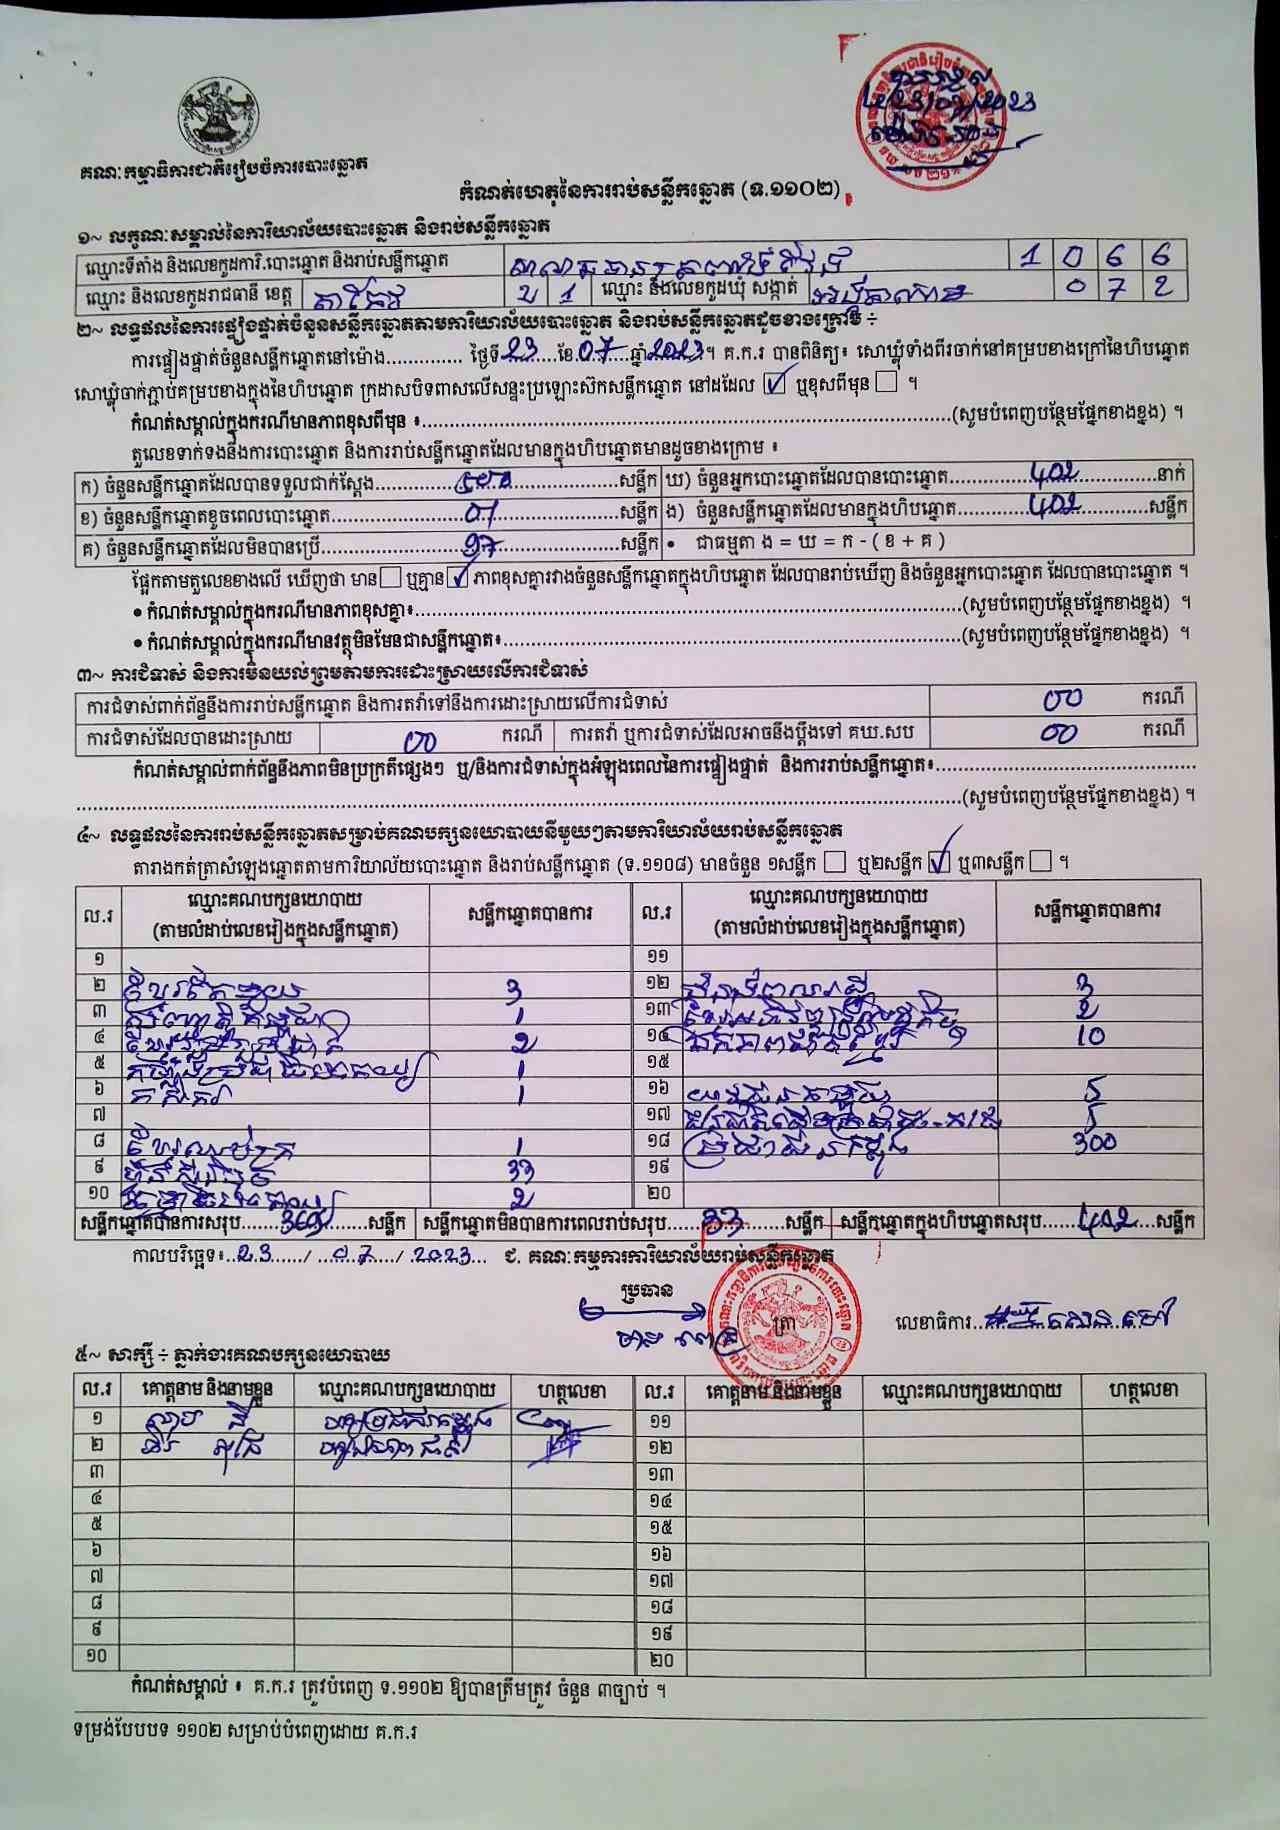 គណៈកម្មាធិការជាតិរៀបចំការបោះឆ្នោត
23/07/2023
កំណត់ហេតុនៃការរាប់សន្លឹកឆ្នោត (ទ.១១០២)
១~ លក្ខណៈសម្គាល់នៃការិយាល័យបោះឆ្នោត និងរាប់សន្លឹកឆ្នោត
ឈ្មោះទីតាំង និងលេខកូដការិ.បោះឆ្នោត និងរាប់សន្លឹកឆ្នោត 1 0 6 6
ឈ្មោះ និងលេខកូដរាជធានី ខេត្ត តាកែវ 2 1 ឈ្មោះ និងលេខកូដឃុំ សង្កាត់ 0 7 2
២~ លទ្ធផលនៃការផ្ទៀងផ្ទាត់ចំនួនសន្លឹកឆ្នោតតាមការិយាល័យបោះឆ្នោត និងរាប់សន្លឹកឆ្នោតដូចខាងក្រោម ÷
ការផ្ទៀងផ្ទាត់ចំនួនសន្លឹកឆ្នោតនៅម៉ោង.............. ថ្ងៃទី 23 ខែ 07 ឆ្នាំ 2023 ។ គ.ក.រ បានពិនិត្យ៖ សោឃ្លុំទាំងពីរចាក់នៅគម្របខាងក្រៅនៃហិបឆ្នោត
សោឃ្លុំចាក់ភ្ជាប់គម្របខាងក្នុងនៃហិបឆ្នោត ក្រដាសបិទពាសលើសន្ទះប្រឡោះស៊កសន្លឹកឆ្នោត នៅដដែល ☑ ឬខុសពីមុន ☐ ។
កំណត់សម្គាល់ក្នុងករណីមានភាពខុសពីមុន ៖..............(សូមបំពេញបន្ថែមផ្នែកខាងខ្នង) ។
តួលេខទាក់ទងនឹងការបោះឆ្នោត និងការរាប់សន្លឹកឆ្នោតដែលមានក្នុងហិបឆ្នោតមានដូចខាងក្រោម ៖
ក) ចំនួនសន្លឹកឆ្នោតដែលបានទទួលជាក់ស្តែង..............សន្លឹក ឃ) ចំនួនអ្នកបោះឆ្នោតដែលបានបោះឆ្នោត.......402.......នាក់
ខ) ចំនួនសន្លឹកឆ្នោតខូចពេលបោះឆ្នោត.......01.......សន្លឹក ង) ចំនួនសន្លឹកឆ្នោតដែលមានក្នុងហិបឆ្នោត.......402.......សន្លឹក
គ) ចំនួនសន្លឹកឆ្នោតដែលមិនបានប្រើ.......97.......សន្លឹក • ជាធម្មតា ង = ឃ = ក - ( ខ + គ )
ផ្អែកតាមតួលេខខាងលើ ឃើញថា មាន ☐ ឬគ្មាន ☑ ភាពខុសគ្នារវាងចំនួនសន្លឹកឆ្នោតក្នុងហិបឆ្នោត ដែលបានរាប់ឃើញ និងចំនួនអ្នកបោះឆ្នោត ដែលបានបោះឆ្នោត ។
• កំណត់សម្គាល់ក្នុងករណីមានភាពខុសគ្នា៖..............(សូមបំពេញបន្ថែមផ្នែកខាងខ្នង) ។
• កំណត់សម្គាល់ក្នុងករណីមានវត្ថុមិនមែនជាសន្លឹកឆ្នោត៖..............(សូមបំពេញបន្ថែមផ្នែកខាងខ្នង) ។
៣~ ការជំទាស់ និងការមិនយល់ព្រមតាមការដោះស្រាយលើការជំទាស់
ការជំទាស់ពាក់ព័ន្ធនឹងការរាប់សន្លឹកឆ្នោត និងការតវ៉ាទៅនឹងការដោះស្រាយលើការជំទាស់ 00 ករណី
ការជំទាស់ដែលបានដោះស្រាយ 00 ករណី ការតវ៉ា ឬការជំទាស់ដែលអាចនឹងប្តឹងទៅ គឃ.សប 00 ករណី
កំណត់សម្គាល់ពាក់ព័ន្ធនឹងភាពមិនប្រក្រតីផ្សេងៗ ឬ/និងការជំទាស់ក្នុងអំឡុងពេលនៃការផ្ទៀងផ្ទាត់ និងការរាប់សន្លឹកឆ្នោត៖..............
..............(សូមបំពេញបន្ថែមផ្នែកខាងខ្នង) ។
៤~ លទ្ធផលនៃការរាប់សន្លឹកឆ្នោតសម្រាប់គណបក្សនយោបាយនីមួយៗតាមការិយាល័យរាប់សន្លឹកឆ្នោត
តារាងកត់ត្រាសំឡេងឆ្នោតតាមការិយាល័យបោះឆ្នោត និងរាប់សន្លឹកឆ្នោត (ទ.១១០៨) មានចំនួន ១សន្លឹក ☐ ឬ២សន្លឹក ☑ ឬ៣សន្លឹក ☐ ។
ល.រ ឈ្មោះគណបក្សនយោបាយ (តាមលំដាប់លេខរៀងក្នុងសន្លឹកឆ្នោត) សន្លឹកឆ្នោតបានការ ល.រ ឈ្មោះគណបក្សនយោបាយ (តាមលំដាប់លេខរៀងក្នុងសន្លឹកឆ្នោត) សន្លឹកឆ្នោតបានការ
១ ១១
២ ខ្មែរតែមួយ 3 ១២ 3
៣ 1 ១៣ 2
៤ 2 ១៤ 10
៥ 1 ១៥
៦ កសិករ 1 ១៦ 5
៧ ១៧ 5
៨ 1 ១៨ ប្រជាជនកម្ពុជា 300
៩ ហ្វ៊ុនស៊ិនប៉ិច 33 ១៩
១០ 2 ២០
សន្លឹកឆ្នោតបានការសរុប.......369.......សន្លឹក សន្លឹកឆ្នោតមិនបានការពេលរាប់សរុប.......33.......សន្លឹក សន្លឹកឆ្នោតក្នុងហិបឆ្នោតសរុប.......402.......សន្លឹក
កាលបរិច្ឆេទ៖ 23 / 07 / 2023 ជ. គណៈកម្មការការិយាល័យរាប់សន្លឹកឆ្នោត
ប្រធាន
ត្រា
លេខាធិការ..............
៥~ សាក្សី ÷ ភ្នាក់ងារគណបក្សនយោបាយ
ល.រ គោត្តនាម និងនាមខ្លួន ឈ្មោះគណបក្សនយោបាយ ហត្ថលេខា ល.រ គោត្តនាម និងនាមខ្លួន ឈ្មោះគណបក្សនយោបាយ ហត្ថលេខា
១ ១១
២ ១២
៣ ១៣
៤ ១៤
៥ ១៥
៦ ១៦
៧ ១៧
៨ ១៨
៩ ១៩
១០ ២០
កំណត់សម្គាល់ ៖ គ.ក.រ ត្រូវបំពេញ ទ.១១០២ ឱ្យបានត្រឹមត្រូវ ចំនួន ៣ច្បាប់ ។
ទម្រង់បែបបទ ១១០២ សម្រាប់បំពេញដោយ គ.ក.រ